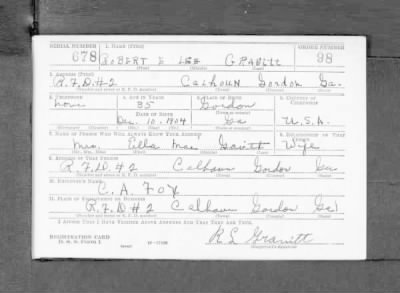 SERIAL NUMBER 1. NAME (Print) ORDER NUMBER
678 ROBERT E LEE GRAVITT 98
(First) (Middle) (Last)
2. ADDRESS (Print)
R.F.D.#2 Calhoun Gordon Ga.
3. TELEPHONE 4. AGE IN YEARS 5. PLACE OF BIRTH 6. COUNTRY OF CITIZENSHIP
none 35 Gordon
DATE OF BIRTH
Dec. 10. 1904 Ga U.S.A.
7. NAME OF PERSON WHO WILL ALWAYS KNOW YOUR ADDRESS 8. RELATIONSHIP OF THAT PERSON
Mrs. Ella Mae Gravitt Wife
9. ADDRESS OF THAT PERSON
R.F.D.#2 Calhoun Gordon Ga
10. EMPLOYER'S NAME
C. A. FOX
11. PLACE OF EMPLOYMENT OR BUSINESS
R.F.D#2 Calhoun Gordon Ga
I AFFIRM THAT I HAVE VERIFIED ABOVE ANSWERS AND THAT THEY ARE TRUE.
REGISTRATION CARD
D. S. S. Form 1 R L Gravitt
(Registrant's signature)